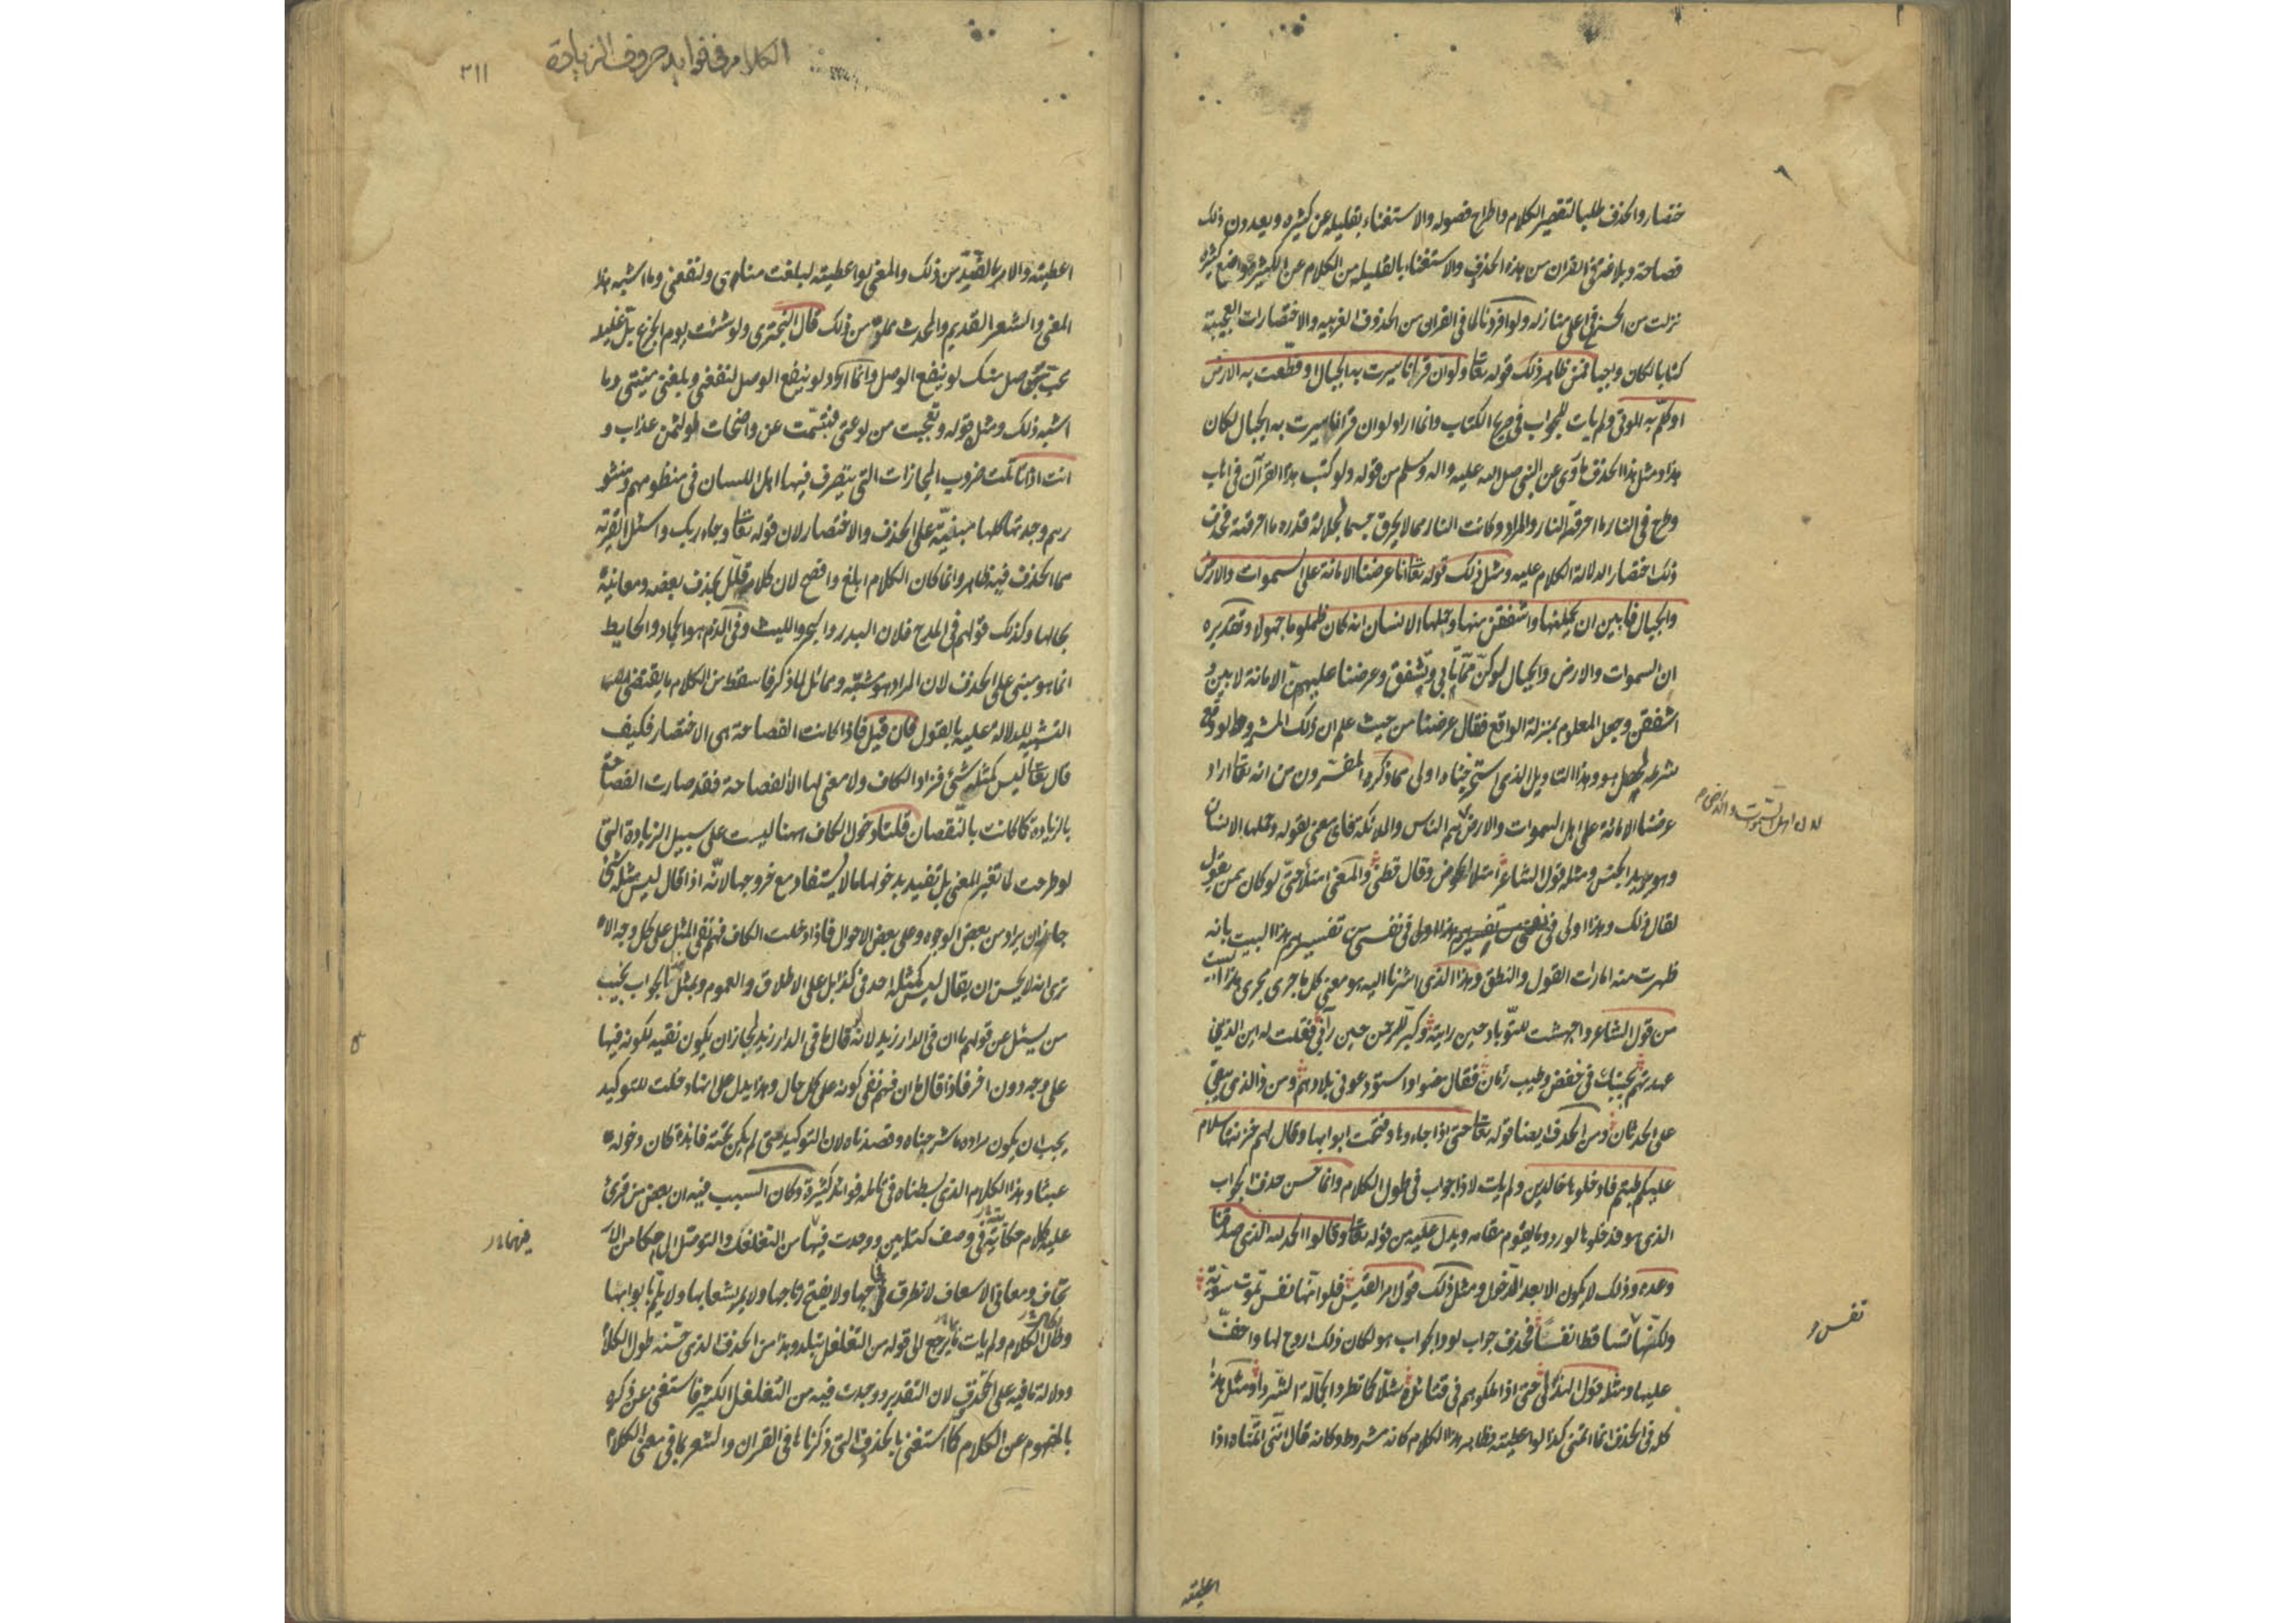 ختصار والحذف طلبا لتقصير الكلام واطراح فضوله والاستغناء بقليله عن كثيره ويعدون ذلك
فصاحة وبلاغة وفي القران من هذه الحذوف والاستغناء بالقليل من الكلام عن الكثير مواضع كثيرة
نزلت من الحسن في اعلى منازله ولو افردنا لما في القران من الحذوف الغريبه والاختصارات العجيبة
كتابا لكان واجبا فمن ظاهر ذلك قوله تعا ولو ان قرانا سيرت به الجبال او قطعت به الارض
او كلم به الموتى ولم يات للجواب في صريح الكتاب وانما اراد لو ان قرانا سيرت به الجبال لكان
هذا ومثل هذا الحذف ما روى عن النبي صلى الله عليه واله وسلم من قوله ولو كتب هذا القرآن في اهاب
وطرح في النار ما احرقته النار والمراد وكانت النار مما لا يحرق جسما لجلالة قدره ما احرقته فحذف
ذلك اختصار الدلالة الكلام عليه ومثل ذلك قوله تعا انا عرضنا الامانة على السموات والارض
والجبال فابين ان يحملنها واشفقن منها وحملها الانسان انه كان ظلوما جهولا وتقديره
ان السموات والارض والجبال لو كن مما يابى ويشفق وعرضنا عليهن الامانة لابين و
اشفقن وجعل المعلوم بمنزلة الواقع فقال عرضنا من حيث علم ان ذلك المشروط لو وقع
شرطه لحصل هو وهذا التاويل الذي استخرجناه اولى مما ذكره المفسرون من انه تعا اراد
عرضنا الامانة على اهل السموات والارض هم الناس والملائكة فاى معنى لقوله وحملها الانسان
لان اهل السموات والارض م
وهو يريد الجنس ومثله قول الشاعر امتلا الحوض وقال قطنى والمعنى امتلأ حتى لو كان ممن يقول
لقال ذلك وهذا اولى في نفسى من تفسيرهم هذا البيت بانه
ظهرت منه امارات القول والنطق وهذا الذي اشرنا اليه هو معنى كل ما جرى مجرى هذا البيت
من قول الشاعر واجهشت للتوباد حين رايته وكبر للرحمن حين رآنى فقلت له اين الذين
عهدتهم بجنبك في خفض وطيب زمان فقال مضوا واستودعونى بلادهم ومن ذا الذي يبقى
على الحدثان ومن الحذف ايضا قوله تعا حتى اذا جاءوها وفتحت ابوابها وقال لهم خزنتها سلام
عليكم طبتم فادخلوها خالدين ولم يات لاذا جواب في طول الكلام وانما حسن حذف الجواب
الذي هو فدخلوها لورود ما يقوم مقامه ويدل عليه من قوله تعا وقالوا الحمد لله الذي صدقنا
وعده وذلك لا يكون الا بعد الدخول ومثل ذلك قول امر القيس فلو انها نفس تموت سوية
نفس و
ولكنها تساقط انفسا فحذف جواب لو والجواب هو لكان ذلك اروح لها واخف
عليها ومثله قول الهذلى حتى اذا اسلكوهم في قتائدة شلا كما تطرد الجمالة الشردا ومثل هذا
كله في الحذف انما اتمنى كذا لو اعطيته وظاهر هذا الكلام كانه مشروط وكانه قال اننى اتمناه اذا
اعطيته
الكلام في فوايد حروف الزيادة
٣١١
اعطيته والامر بالضد من ذلك والمعنى لو اعطيته لبلغت مناي ولنفعنى وما اشبه هذا
المعنى والشعر القديم والمحدث مملو من ذلك قال البحترى ولو شئت يوم الجزع بل غليله
محب بوصل منك لو ينفع الوصل وانما اراد لو ينفع الوصل لنفعنى وبلغنى منيتى وما
اشبه ذلك ومثل قوله وتعجبت من لوعتى فتبسمت عن واضحات لو لثمن عذاب و
انت اذا تاملت ضروب المجازات التي يتصرف فيها اهل اللسان في منظومهم ومنثو
رهم وجدتها كلها مبنية على الحذف والاختصار لان قوله تعا وجاء ربك واسئل القرية
مما الحذف فيه ظاهر وانما كان الكلام ابلغ وافصح لان كلام قلل بحذف بعضه ومعانيه
بحالها وكذلك قولهم في المدح فلان البدر والبحر والليث وفي الذم هو الجماد والحايط
انما هو مبنى على الحذف لان المراد هو مشبه ومماثل لما ذكر فاسقط من الكلام ما يقتضى
التشبيه للدلالة عليه بالقول فان قيل فاذا كانت الفصاحة هى الاختصار فكيف
قال تعا ليس كمثله شئ فزاد الكاف ولا معنى لها الا الفصاحة فقد صارت الفصاحة
بالزيادة كما كانت بالنقصان قلنا دخول الكاف ههنا ليست على سبيل الزيادة التى
لو طرحت لما تغير المعنى بل تفيد بدخولها ما لا يستفاد مع خروجها لانه اذا قال ليس مثله شئ
جاز ان يراد من بعض الوجوه وعلى بعض الاحوال فاذا دخلت الكاف فهم نفى المثل على كل وجه الا
ترى انه لا يحسن ان يقال ليس كمثله احد في كذا بل على الاطلاق والعموم وبمثل هذا الجواب يجيب
من يسئل عن قولهم ما ان في الدار زيد لانه لو قال ما في الدار زيد لجاز ان يكون نفيه لكونه فيها
على وجه دون اخر فاذا قال ما ان فهم نفى كونه على كل حال وهذا يدل على انها دخلت للتوكيد
يجب ان يكون مراده ما شرحناه وقصدناه لان التوكيد متى لم يكن تحته فائدة كان دخوله
عبثا وهذا الكلام الذي بسطناه في تامله فوائد كثيرة وكان السبب فيه ان بعض من قرئ
عليه كلام حكايته في وصف كتابين ووجدت فيها من التغلغل والتوصل الى احكام من الا
فيهما
تحاف ومعانى الاسعاف لا تطرق فجاجها ولا يفتح رتاجها ولا يمر بشعابها ولا يلم بابوابها
وطال الكلام ولم يات ما يرجع الى قوله من التغلغل بتلد وهذا من الحذف الذي حسنه طول الكلام
ودلالة ما فيه على الحذف لان التقدير ووجدت فيه من التغلغل الكثير فاستغنى عن ذكره
بالمفهوم عن الكلام كما استغنى بالحذوف التى ذكرناها في القران والشعر بما في معنى الكلام